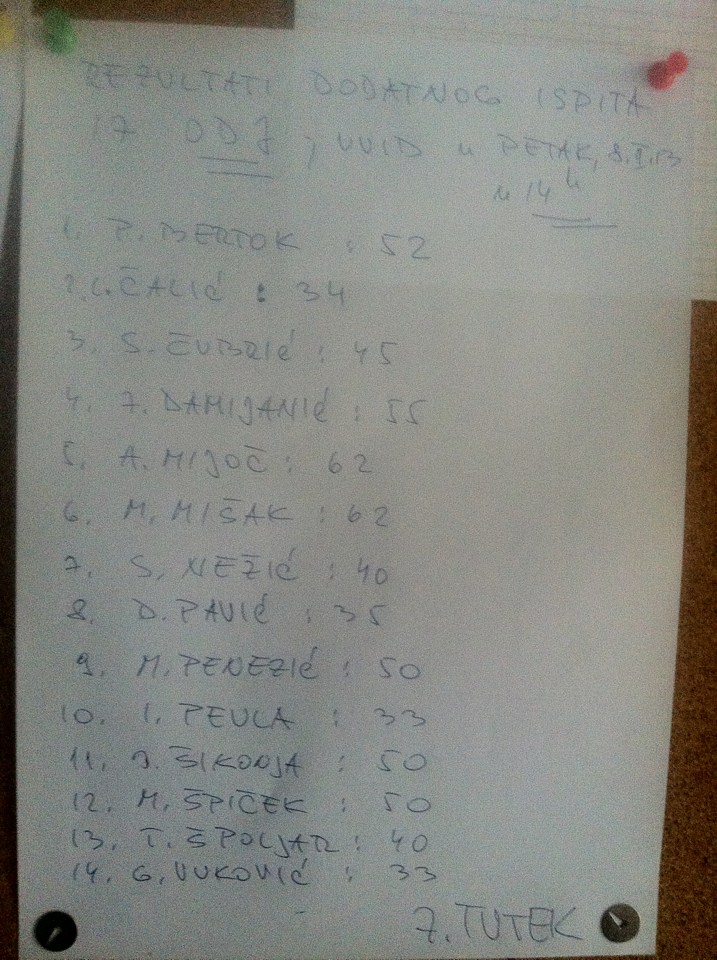 REZULTATI DODATNOG ISPITA
IZ ODJ, UVID u PETAK, 8.II.13
u 14h
1. P. BERTOK : 52
2. I. ČALIĆ : 34
3. S. ČUBRIĆ : 45
4. Z. DAMIJANIĆ : 55
5. A. MIJOČ : 62
6. M. MIŠAK : 62
7. S. NEŽIĆ : 40
8. D. PAVIĆ : 35
9. M. PENEZIĆ : 50
10. I. PEULA : 33
11. J. ŠIKONJA : 50
12. M. ŠPIČEK : 50
13. T. ŠPOLJAR : 40
14. G. VUKOVIĆ : 33
Z. TUTEK